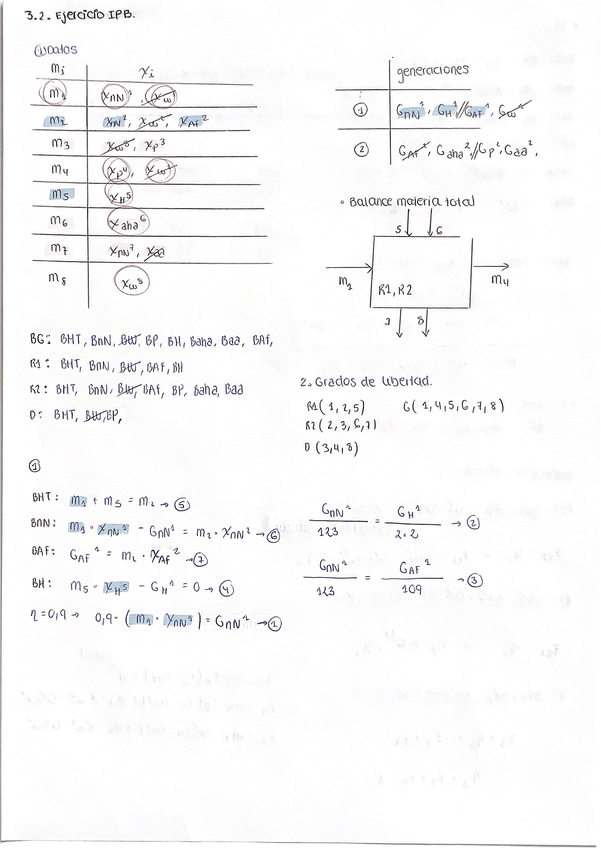 3.2. Ejercicio IPB.
① Datos
mᵢ xᵢ
m₁ x_NN¹, x_W¹
m₂ x_NN², x_W², x_AF²
m₃ x_W³, x_P³
m₄ x_P⁴, x_W⁴
m₅ x_H⁵
m₆ x_aha⁶
m₇ x_NN⁷, x_aa
m₈ x_W⁸
generaciones
① G_NN¹, G_H¹//G_AF¹, G_W¹
② G_AF², G_aha²//G_P², G_aa².
• Balance materia total
5 6
m₁ R1, R2 m₄
7 8
BG: BHT, BNN, BW, BP, BH, Baha, Baa, BAF,
R1: BHT, BNN, BW, BAF, BH
R2: BHT, BNN, BW, BAF, BP, Baha, Baa
D: BHT, BW, BP,
2. Grados de libertad.
R1 (1,2,5) G (1,4,5,6,7,8)
R2 (2,3,6,7)
D (3,4,8)
①
BHT: m₁ + m₅ = m₂ → ⑤
BNN: m₁ · x_NN¹ - G_NN¹ = m₂ · x_NN² → ⑥
BAF: G_AF¹ = m₂ · x_AF² → ⑦
BH: m₅ · x_H⁵ - G_H¹ = 0 → ④
η = 0,9 → 0,9 · (m₁ · x_NN¹) = G_NN¹ → ①
G_NN¹/123 = G_H¹/2·2 → ②
G_NN¹/123 = G_AF¹/109 → ③